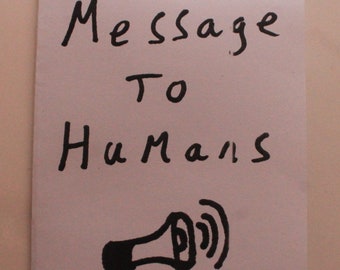 Message
To
Humans